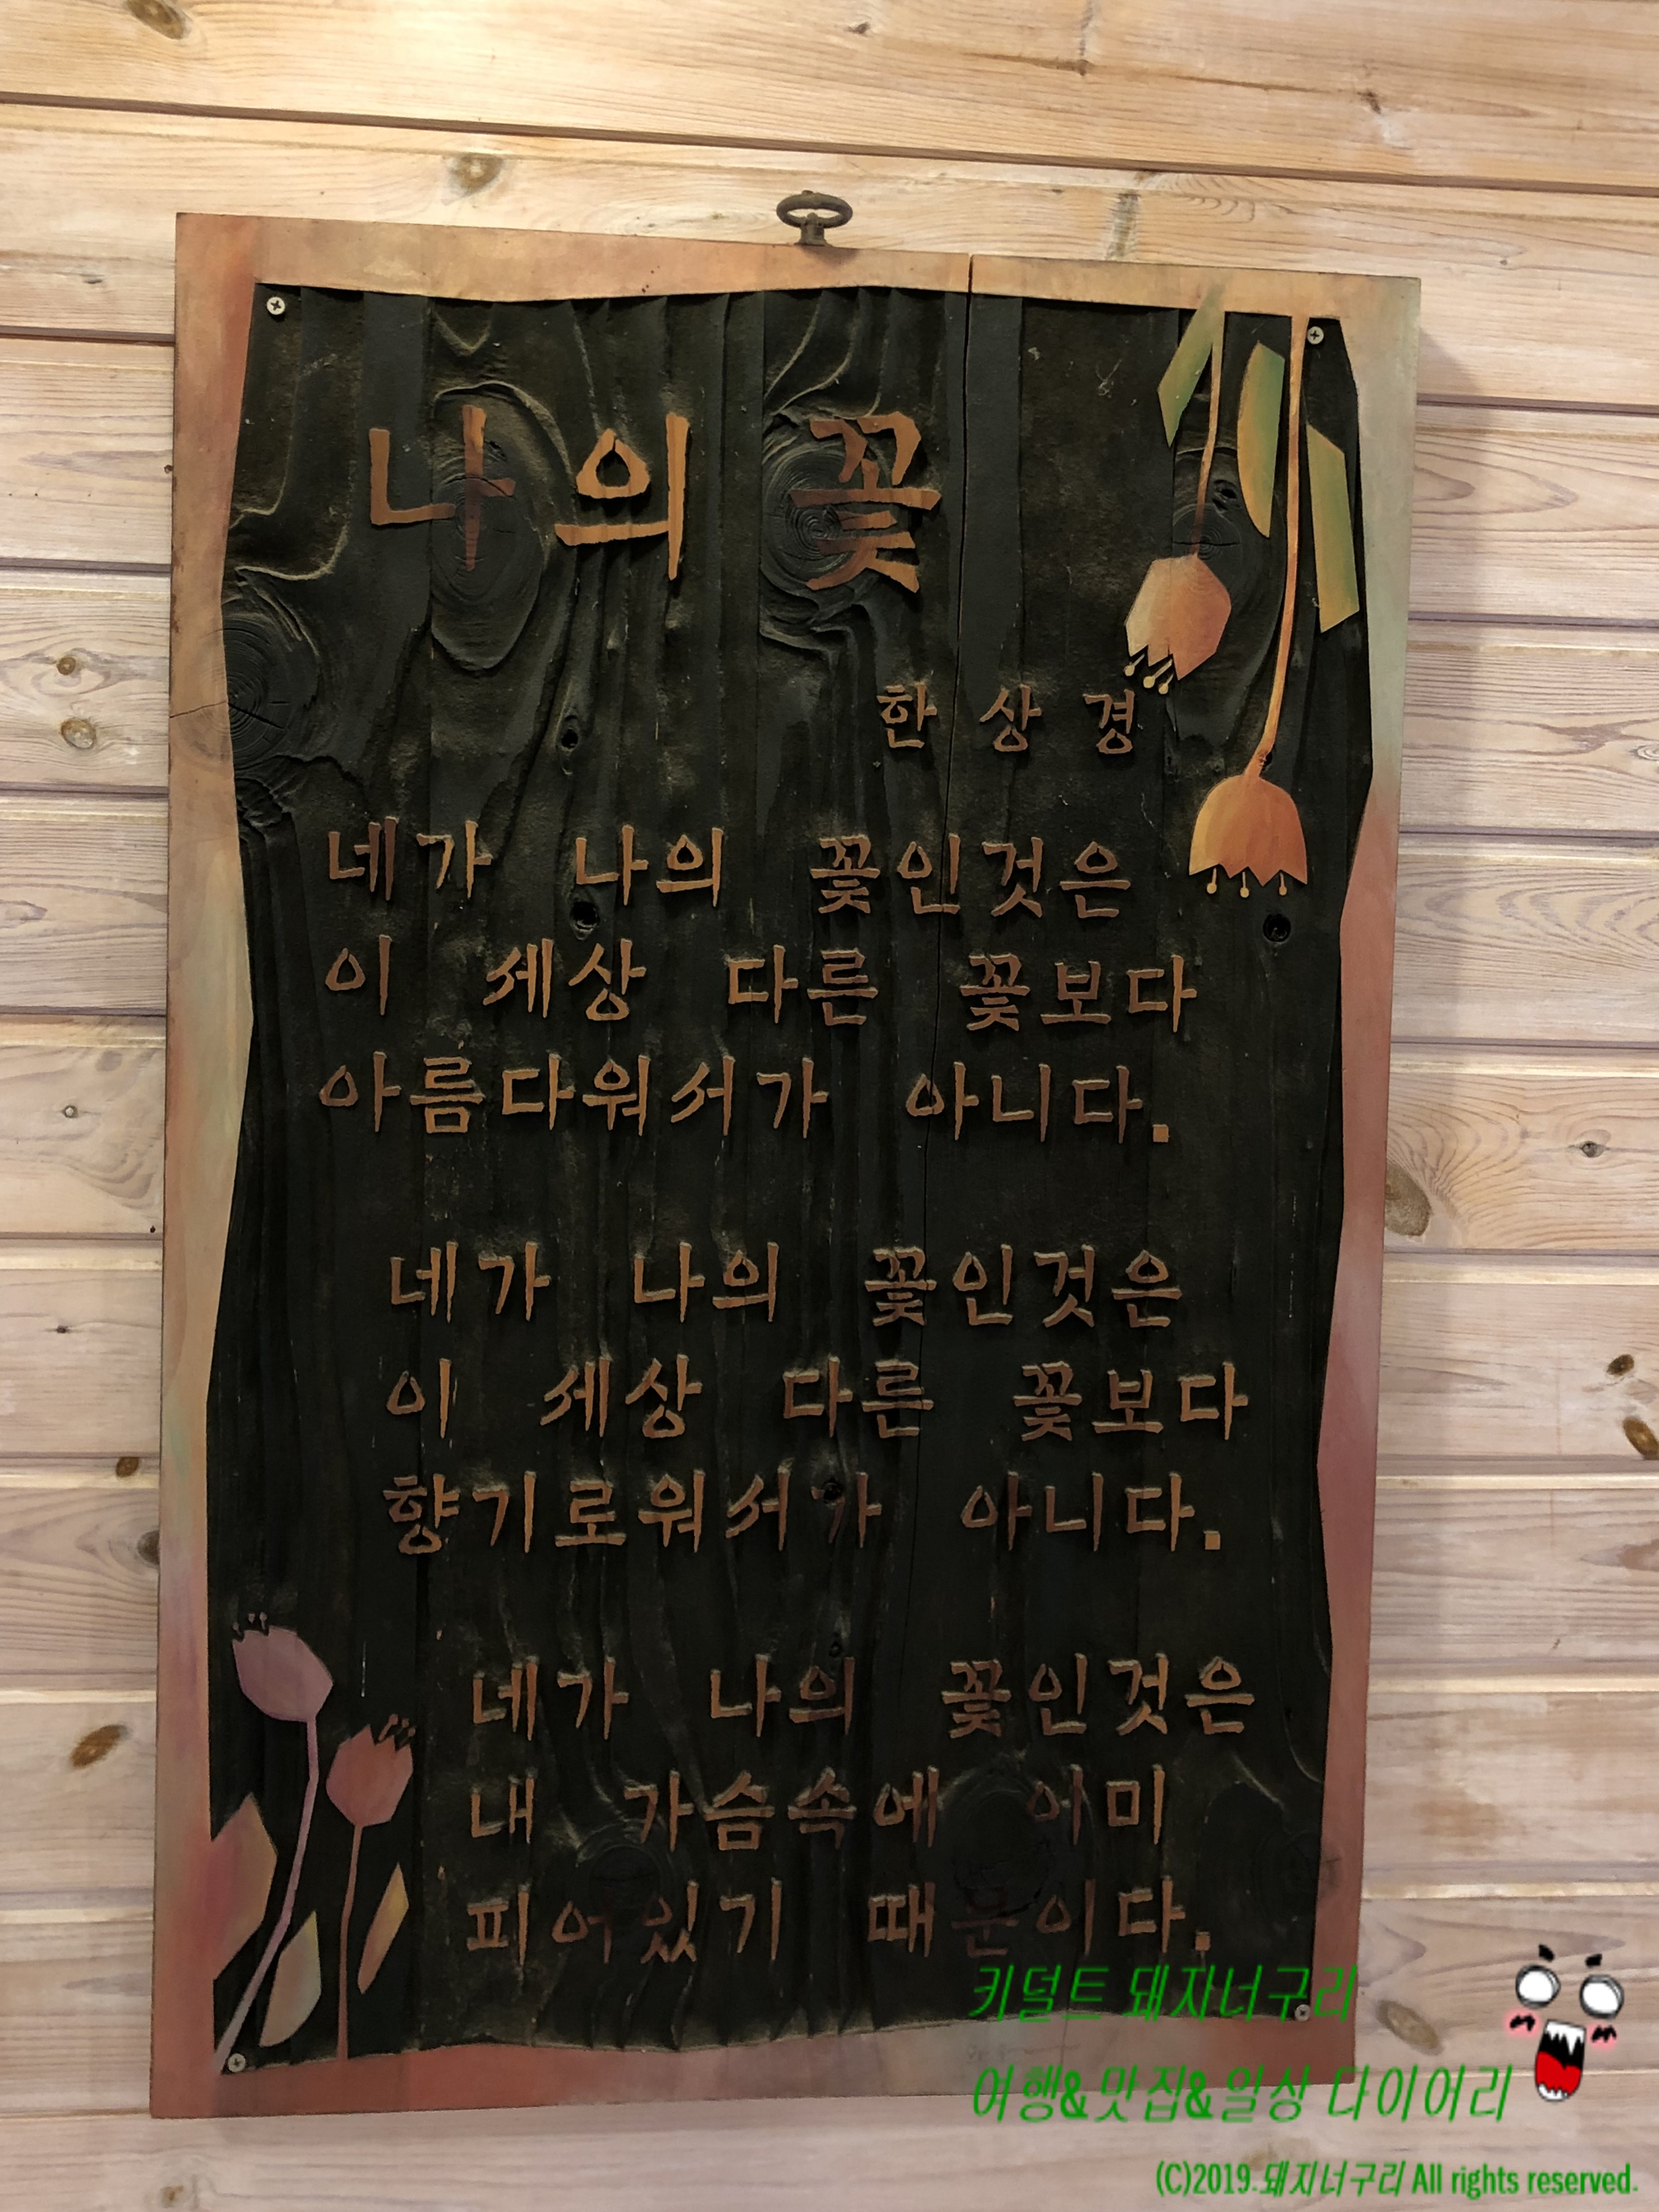 나의 꽃
한상경
네가 나의 꽃인것은
이 세상 다른 꽃보다
아름다워서가 아니다.
네가 나의 꽃인것은
이 세상 다른 꽃보다
향기로워서가 아니다.
네가 나의 꽃인것은
내 가슴속에 이미
피어있기 때문이다.
키덜트 돼지너구리
여행&맛집&일상 다이어리
(C)2019.돼지너구리 All rights reserved.